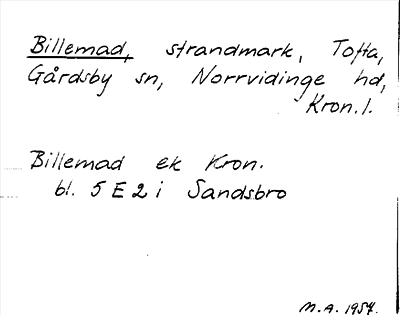 Billemad, strandmark, Tofta,
Gårdsby sn, Norrvidinge hd,
Kron. l.
Billemad ek Kron.
bl. 5 E 2 i Sandsbro
M.A. 1957.